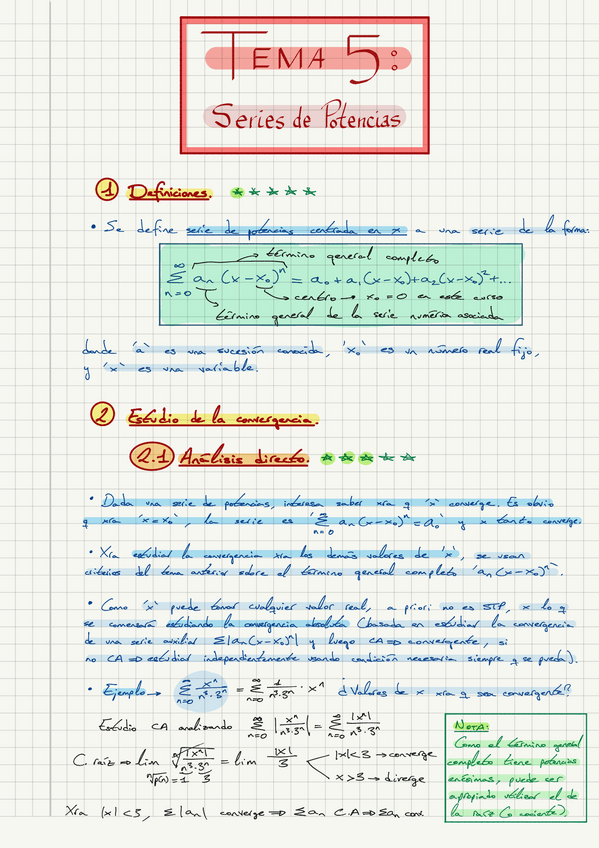 TEMA 5:
Series de Potencias
1 Definiciones.
• Se define serie de potencias centrada en x a una serie de la forma:
término general completo
∑ₙ₌₀^∞ aₙ (x-x₀)ⁿ = a₀ + a₁(x-x₀) + a₂(x-x₀)² + ...
centro → x₀ = 0 en este curso
término general de la serie numérica asociada
donde 'a' es una sucesión conocida, 'x₀' es un número real fijo,
y 'x' es una variable.
2 Estudio de la convergencia.
2.1 Análisis directo.
• Dada una serie de potencias, interesa saber xra q 'x' converge. Es obvio
q xra 'x=x₀', la serie es '∑ₙ₌₀^∞ aₙ(x-x₀)ⁿ = a₀' y x tanto converge.
• Xra estudiar la convergencia xra los demás valores de 'x', se usan
criterios del tema anterior sobre el término general completo 'aₙ(x-x₀)ⁿ'.
• Como 'x' puede tomar cualquier valor real, a priori no es STP, x lo q
se comenzará estudiando la convergencia absoluta (basada en estudiar la convergencia
de una serie auxiliar ∑|aₙ(x-x₀)ⁿ| y luego CA ⇒ convergente, si
no CA ⇒ estudiar independientemente usando condición necesaria siempre q se pueda).
• Ejemplo → ∑ₙ₌₀^∞ xⁿ/(n³·3ⁿ) = ∑ₙ₌₀^∞ 1/(n³·3ⁿ) · xⁿ ¿Valores de x xra q sea convergente?
Estudio CA analizando ∑ₙ₌₀^∞ |xⁿ/(n³·3ⁿ)| = ∑ₙ₌₀^∞ |xⁿ|/(n³·3ⁿ)
C. raíz ⇒ lim ⁿ√(|xⁿ|/(n³·3ⁿ)) = lim |x|/3
|x|<3 → converge
x>3 → diverge
ⁿ√p(n) = 1 3
Xra |x|<3, ∑|aₙ| converge ⇒ ∑aₙ C.A ⇒ ∑aₙ conv.
NOTA:
Como el término general
completo tiene potencias
enésimas, puede ser
apropiado utilizar el de
la raíz (o cociente).